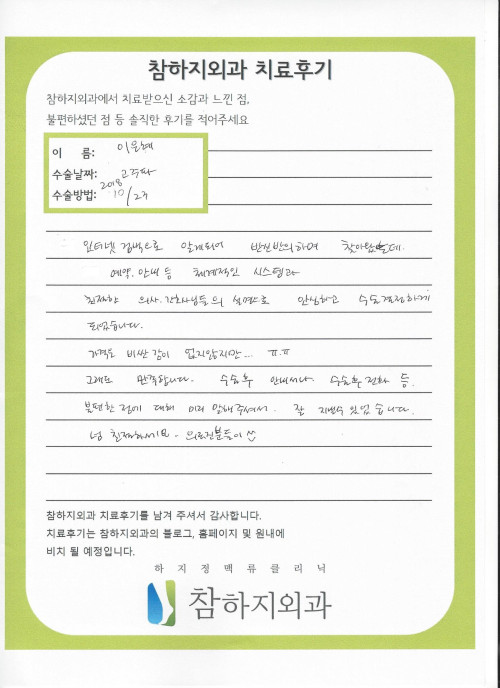 참하지외과 치료후기
참하지외과에서 치료받으신 소감과 느낀 점,
불편하셨던 점 등 솔직한 후기를 적어주세요
이 름: 이은혜
수술날짜: 고주파
수술방법: 2018 10/23
인터넷 검색으로 알게되어 반신반의하며 찾아왔는데.
예약. 안내 등 체계적인 시스템과
친절한 의사.간호사님들의 설명으로 안심하고 수술결정하게
되었습니다.
가격도 비싼감이 없지않지만... ㅠ.ㅠ
그래도 만족합니다. 수술후 안내서나. 수술후 전화 등.
불편한 점에 대해 미리 말해주셔서. 잘 지낼수 있었습니다.
넘 친절하세요. 의료진분들이 ^^
참하지외과 치료후기를 남겨 주셔서 감사합니다.
치료후기는 참하지외과의 블로그, 홈페이지 및 원내에
비치 될 예정입니다.
하지정맥류클리닉
참하지외과